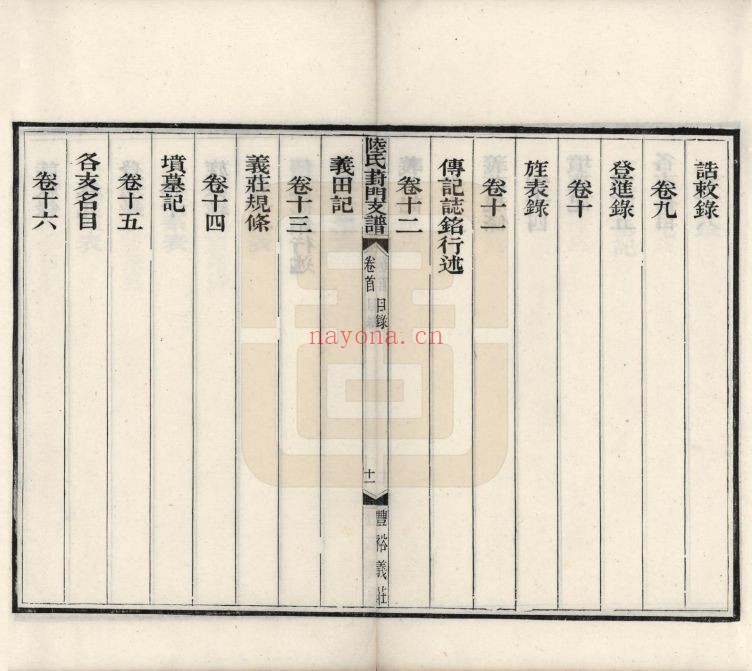 誥敕錄
卷九
登進錄
卷十
旌表錄
卷十一
傳記誌銘行述
卷十二
陸氏葑門支譜
卷首 目錄
十一
豐裕義莊
義田記
卷十三
義莊規條
卷十四
墳墓記
卷十五
各支名目
卷十六
nayona.cn